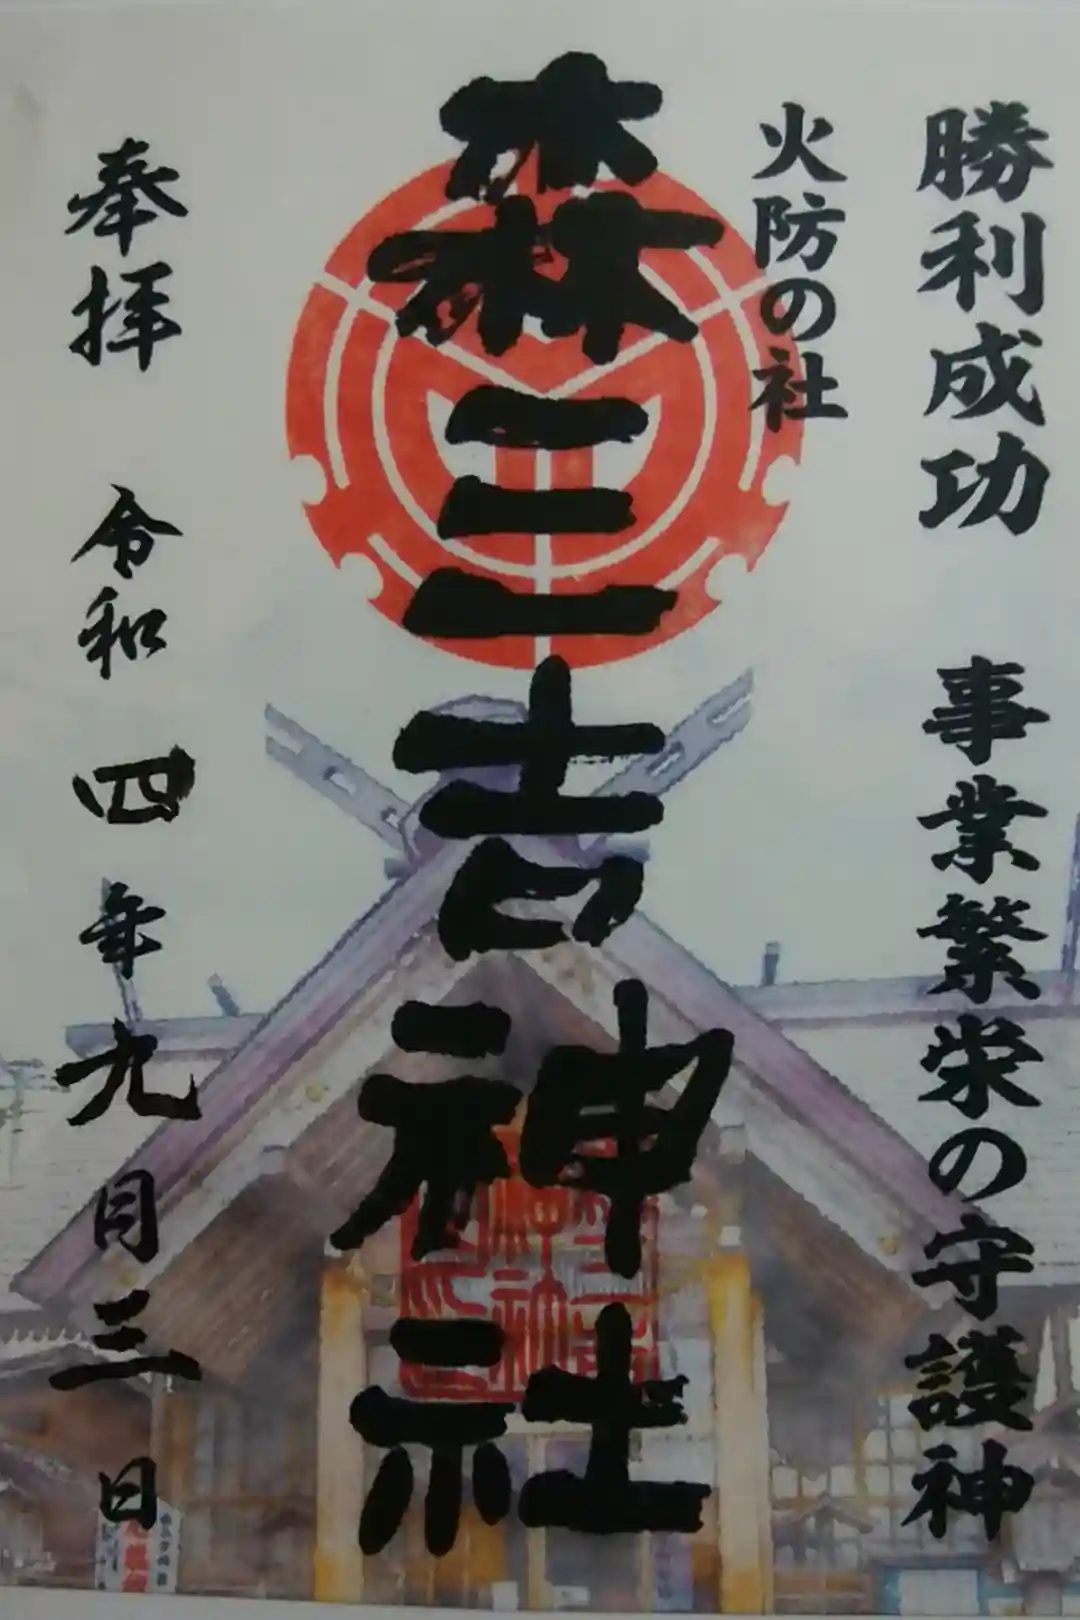 勝利成功 事業繁栄の守護神
火防の社
森三吉神社
奉拝 令和 四年九月三日